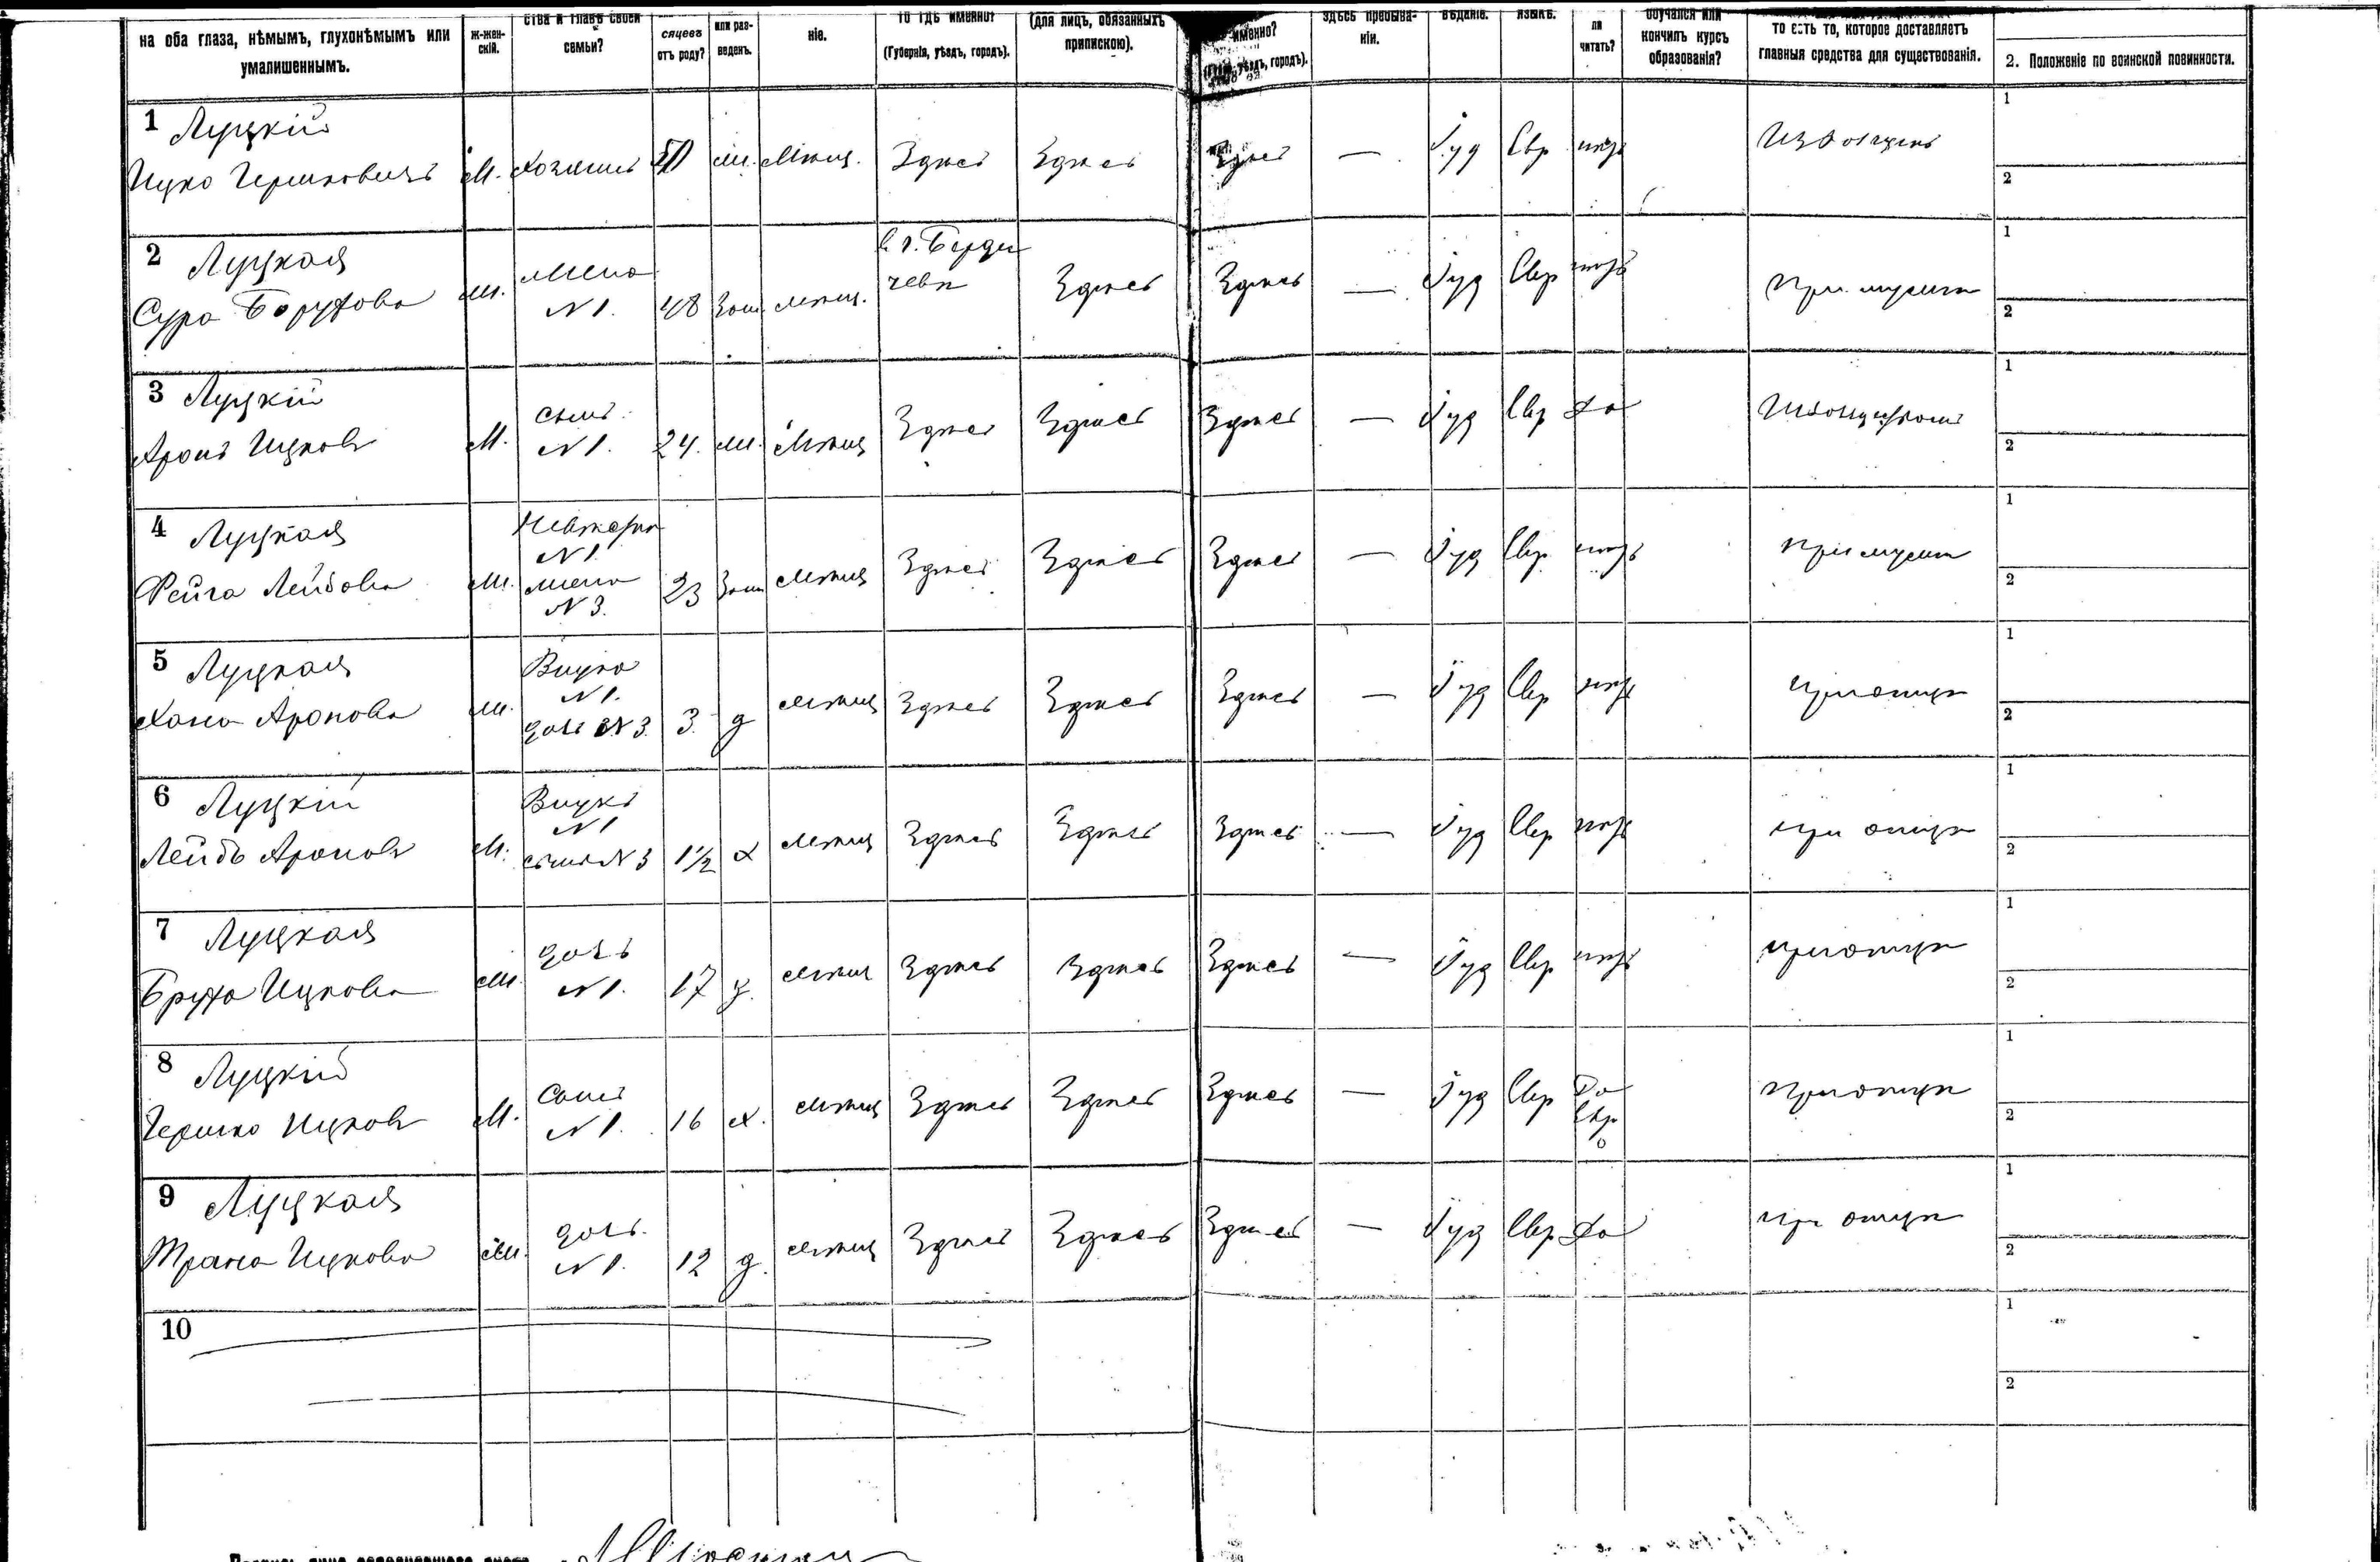 на оба глаза, нѣмымъ, глухонѣмымъ или умалишеннымъ.
ж-жен-скій.
ства и главѣ своей семьи?
сяцевъ отъ роду?
или раз-веденъ.
ніе.
то гдѣ именно?
(Губернія, уѣздъ, городъ).
(для лицъ, обязанныхъ припискою).
именно?
уѣздъ, городъ).
здѣсь пребыва-ніи.
вѣданіе.
языкъ.
ли читать?
обучался или кончилъ курсъ образованія?
то есть то, которое доставляетъ главныя средства для существованія.
2. Положеніе по воинской повинности.
1 Луцкій
Ицко Гершковичъ М. Хозяинъ 50 ж. Мѣщ. Здѣсь Здѣсь Здѣсь — Іуд Евр нѣтъ Извощикъ
1
2
2 Луцкая
Сура Борухова ж. Жена N 1. 48 Зам. Мѣщ. в г. Берди
чевѣ Здѣсь Здѣсь — Іуд Евр нѣтъ При мужѣ
1
2
3 Луцкій
Аронъ Ицковъ М. Сынъ N 1. 24. ж. Мѣщ Здѣсь Здѣсь Здѣсь — Іуд Евр Да
1
2
4 Луцкая
Фейга Лейбова ж. Невѣстка
N 1.
жена
N 3. 23 Зам Мѣщ Здѣсь Здѣсь Здѣсь — Іуд Евр нѣтъ при мужѣ
1
2
5 Луцкая
Хана Аронова ж. Внучка
N 1.
дочь N 3. 3. д Мѣщ Здѣсь Здѣсь Здѣсь — Іуд Евр нѣтъ при отцѣ
1
2
6 Луцкій
Лейбъ Ароновъ М. Внукъ
N 1
сынъ N 3 1½ х Мѣщ Здѣсь Здѣсь Здѣсь — Іуд Евр нѣтъ при отцѣ
1
2
7 Луцкая
Бруха Ицкова ж. дочь
N 1. 17 д. Мѣщ Здѣсь Здѣсь Здѣсь — Іуд Евр нѣтъ при отцѣ
1
2
8 Луцкій
Гершко Ицковъ М. Сынъ
N 1. 16 х. Мѣщ Здѣсь Здѣсь Здѣсь — Іуд Евр Да
Евр. при отцѣ
1
2
9 Луцкая
Трана Ицкова ж. дочь.
N 1. 12 д. Мѣщ Здѣсь Здѣсь Здѣсь — Іуд Евр Да при отцѣ
1
2
10
1
2